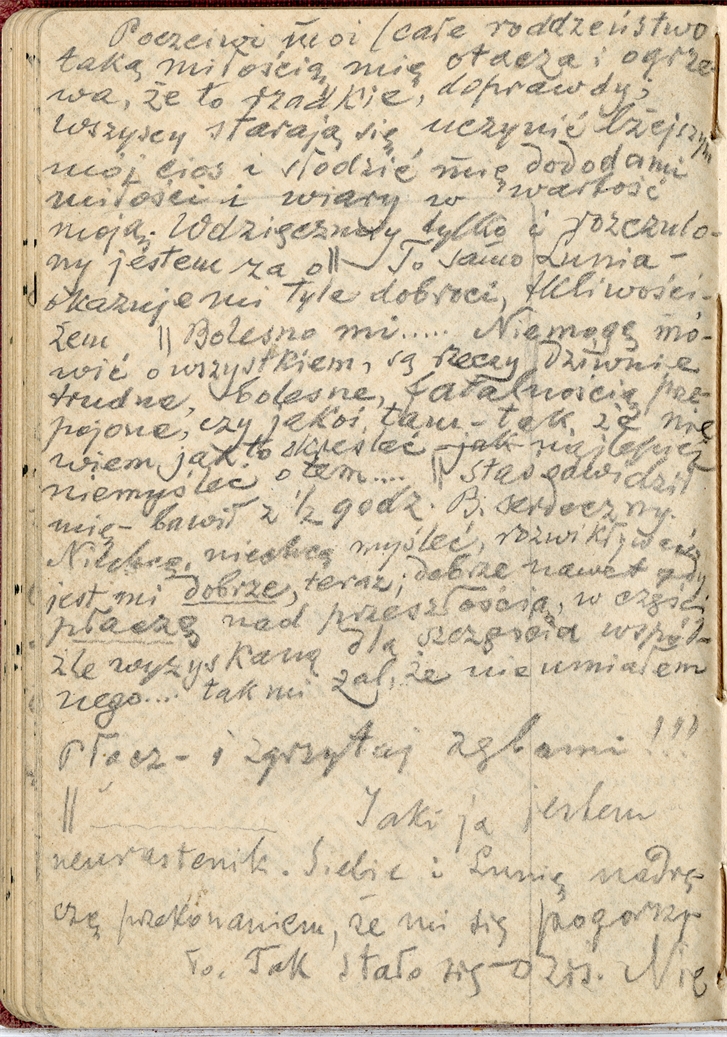 Poczciwi moi (całe roddzeństwo
taką miłością mię otacza i ogrze-
wa, że to rzadkie, doprawdy,
wszyscy starają się uczynić lżejszym
mój cios i słodzić mię dododami
miłości i wiary w wartość
moją. Wdzięczny tylko i rozczulo-
ny jestem za o|| To samo Lunia -
okazuje mi tyle dobroci, tkliwości -
żem || Bolesno mi..... Niemogę mó-
wić o wszystkiem, są rzeczy dziwnie
trudne, bolesne, fatalnością prze-
pojone, czy jakoś tam - tak, że nie
wiem, jak to skreślać - jak najlepiej
niemyśleć o tem.... || Staś odwidził
mię - bawił 2 ½ godz. B. serdeczny.
Niechcę, niechcę myśleć, rozwikływać,
jest mi dobrze, teraz; dobrze nawet gdy
płaczę nad przeszłością, w części
źle wyzyskaną dla szczęścia wspól-
nego... tak mi żal, że nie umiałem
Płacz - i zgrzytaj zębami!!!
|| Jaki ja jestem
neurastenik. Siebie i Lunię nadrę-
czę przekonaniem, że mi się pogorszy-
ło. Tak stało się dziś. Nie